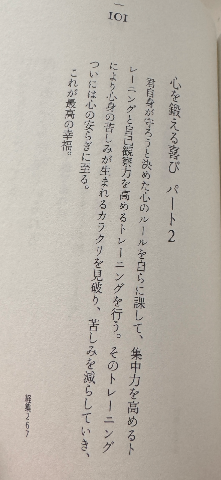 101
心を鍛える喜び パート2
君自身が守ろうと決めた心のルールを自らに課して、集中力を高めるト
レーニングと自己観察力を高めるトレーニングを行う。そのトレーニング
により心身の苦しみが生まれるカラクリを見破り、苦しみを減らしていき、
ついには心の安らぎに至る。
これが最高の幸福。
経集267